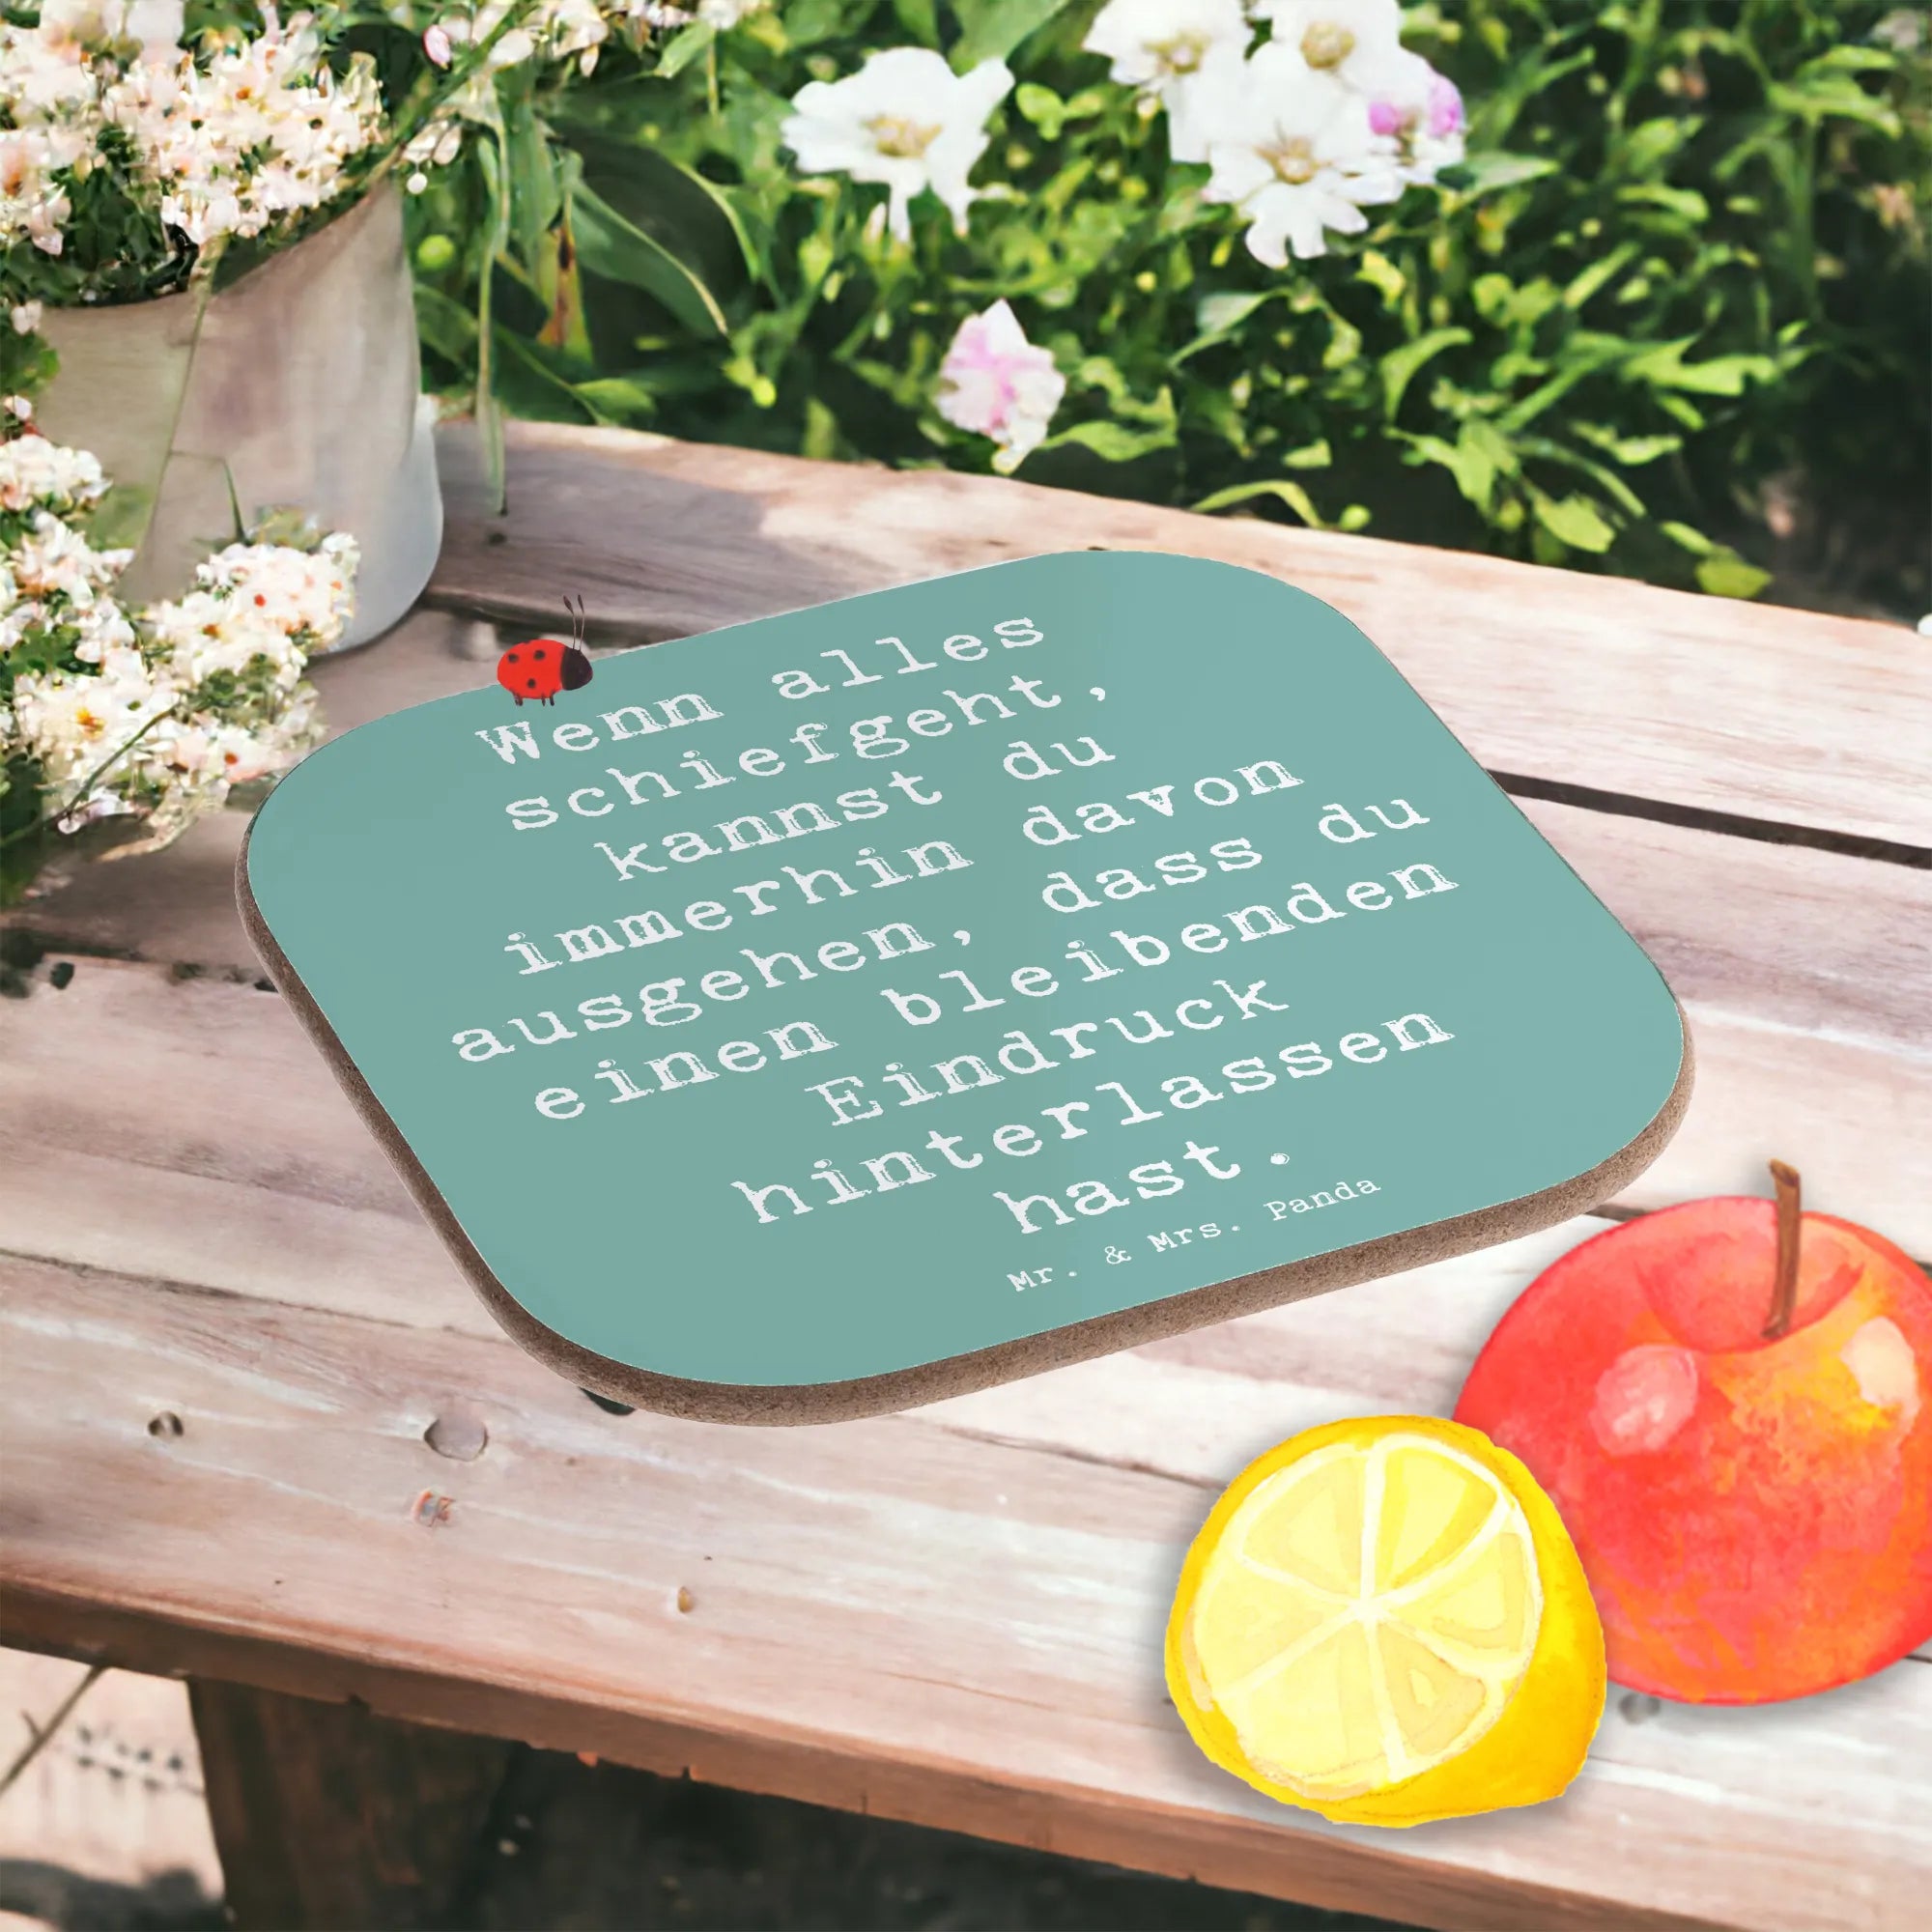 Wenn alles
schiefgeht,
kannst du
immerhin davon
ausgehen, dass du
einen bleibenden
Eindruck
hinterlassen
hast.
Mr. & Mrs. Panda